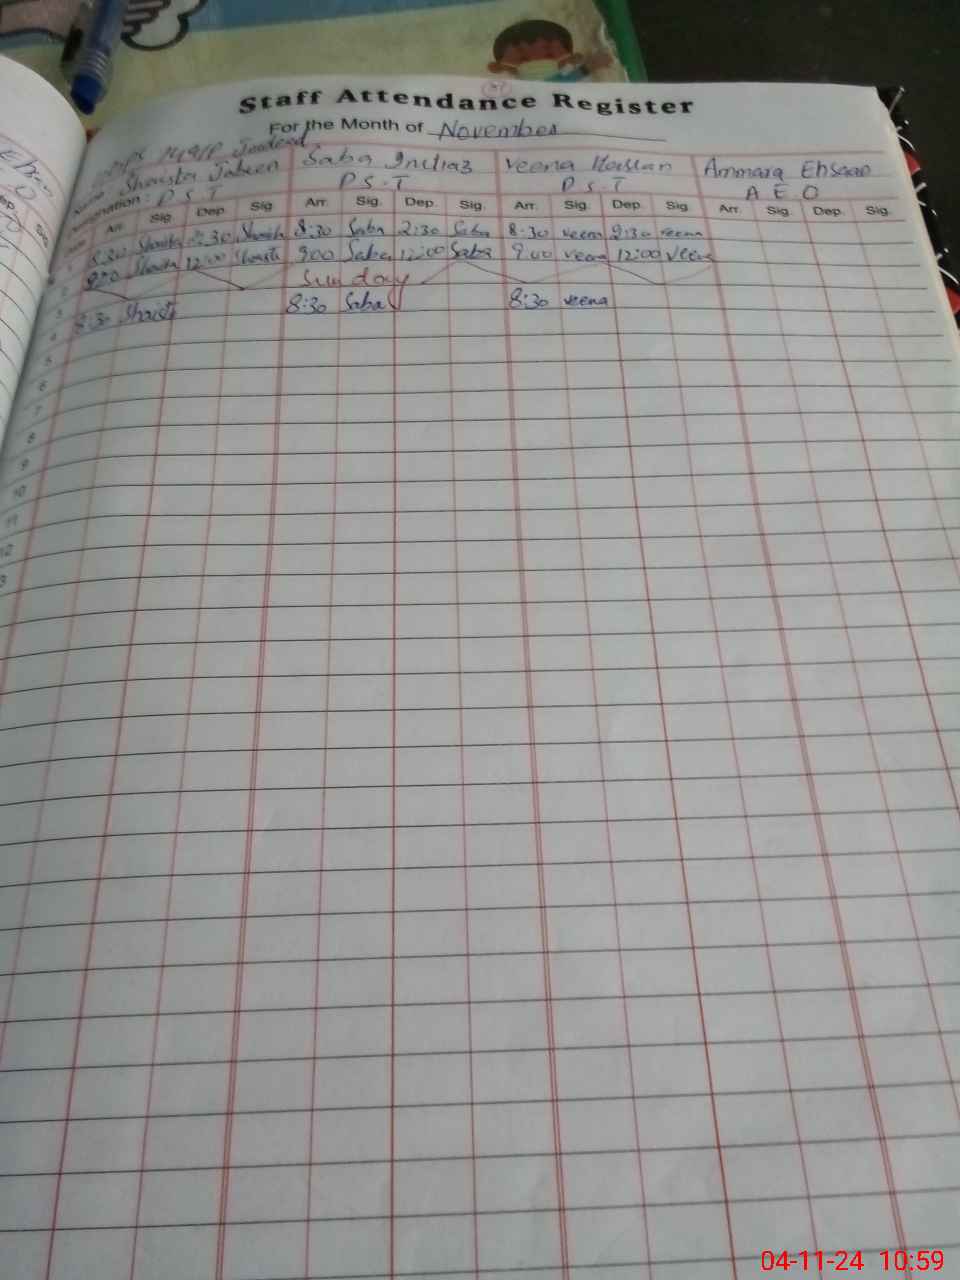 Staff Attendance Register
For the Month of November
Name: Shaista Jabeen Saba Imtiaz Veena Hassan Ammara Ehsaan
Designation: P S T P S.T P S.T A E O
Arr. Sig Dep. Sig. Arr. Sig. Dep. Sig. Arr. Sig. Dep. Sig. Arr. Sig. Dep. Sig.
1 8:30 Shaista 2:30 Shaista 8:30 Saba 2:30 Saba 8:30 veena 2:30 veena
2 9:00 Shaista 12:00 Shaista 9:00 Saba 12:00 Saba 9:00 veena 12:00 veena
3 Sunday
4 8:30 Shaista 8:30 Saba 8:30 veena
5
6
7
8
9
10
11
12
04-11-24 10:59